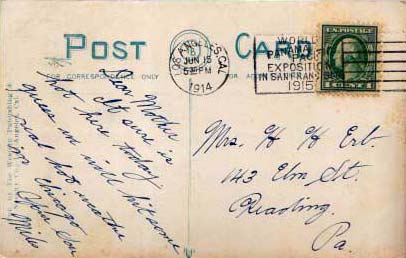 POST CARD
FOR CORRESPONDENCE ONLY
FOR ADDRESS
LOS ANGELES, CAL.
JUN 15
5 30 PM
1914
WORLD'S
PANAMA PAC
EXPOSITION
IN SAN FRANCISCO
1915
U.S. POSTAGE
1 CENT 1
Dear Mother
It sure is
hot here today
guess we will hit some
real hot weather
in Chicago
Your Son
Milo
Mrs. H H Erb.
143 Elm St.
Reading.
Pa.